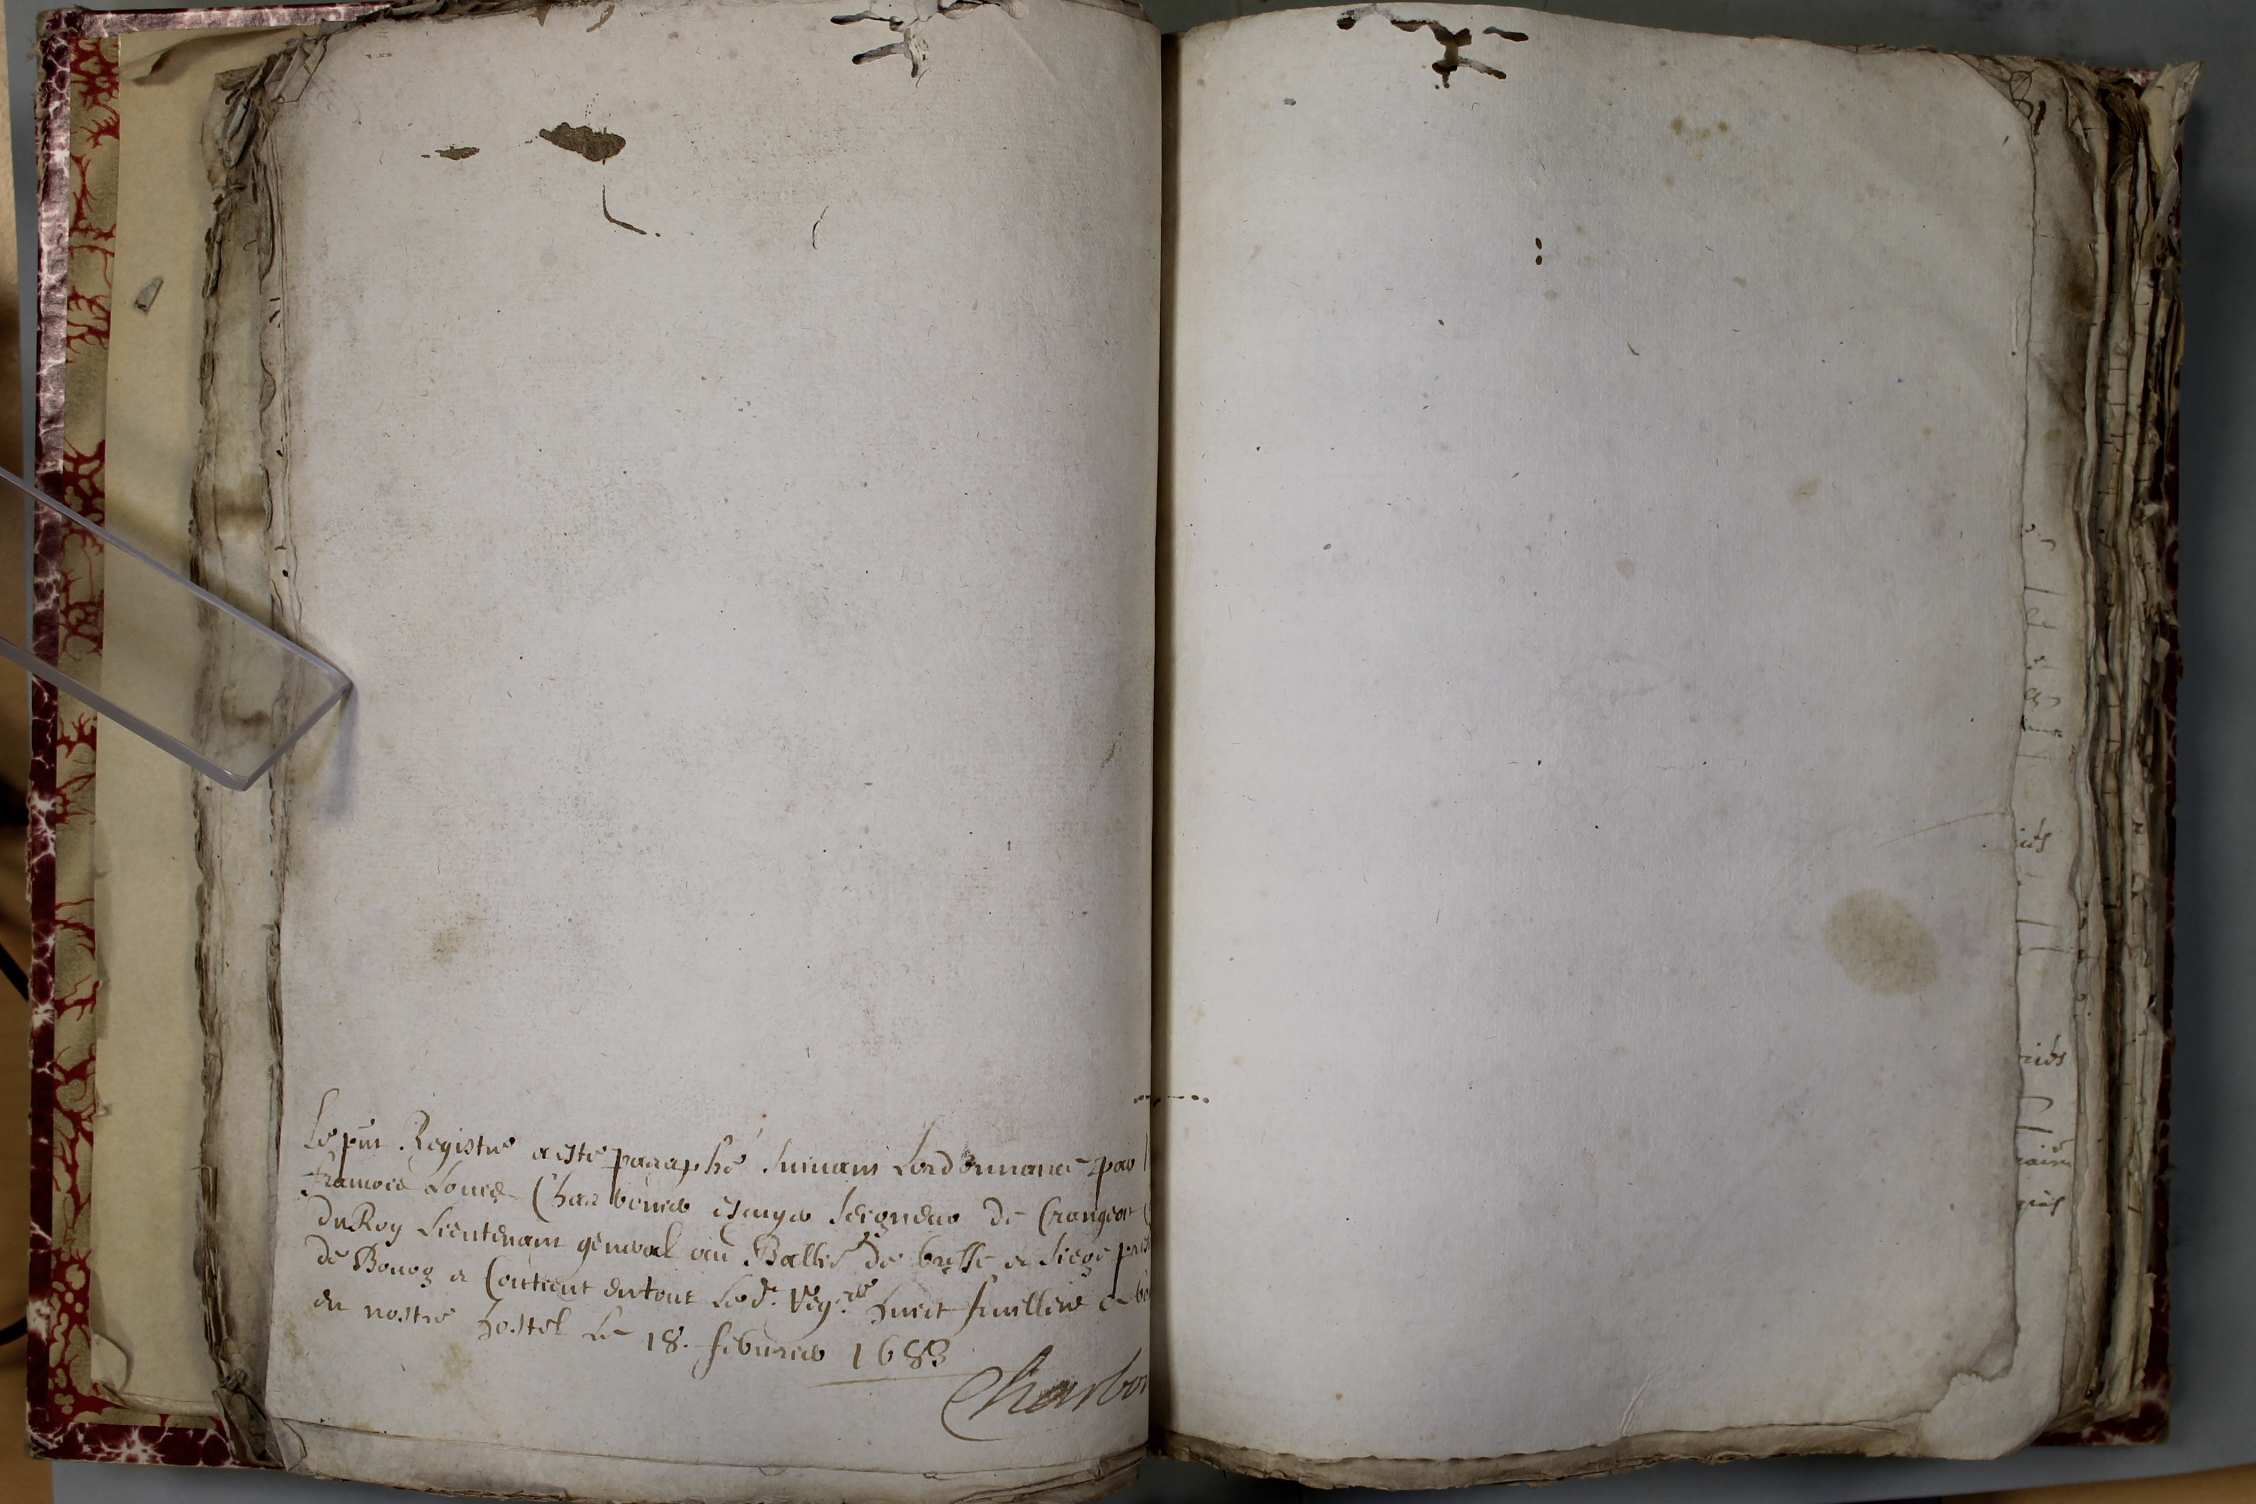 Le pnt Registre a esté paraphé suivant Lordonnance par
francois Louis Charbonier escuyer seigneur de Crangeat
du Roy Lieutenant general au Balliage de bresse et siege pres
de Bourg et Contient en tout Led. Regre huict feuillets et
en nostre hostel Le 18. febvrier 1683
Charbon